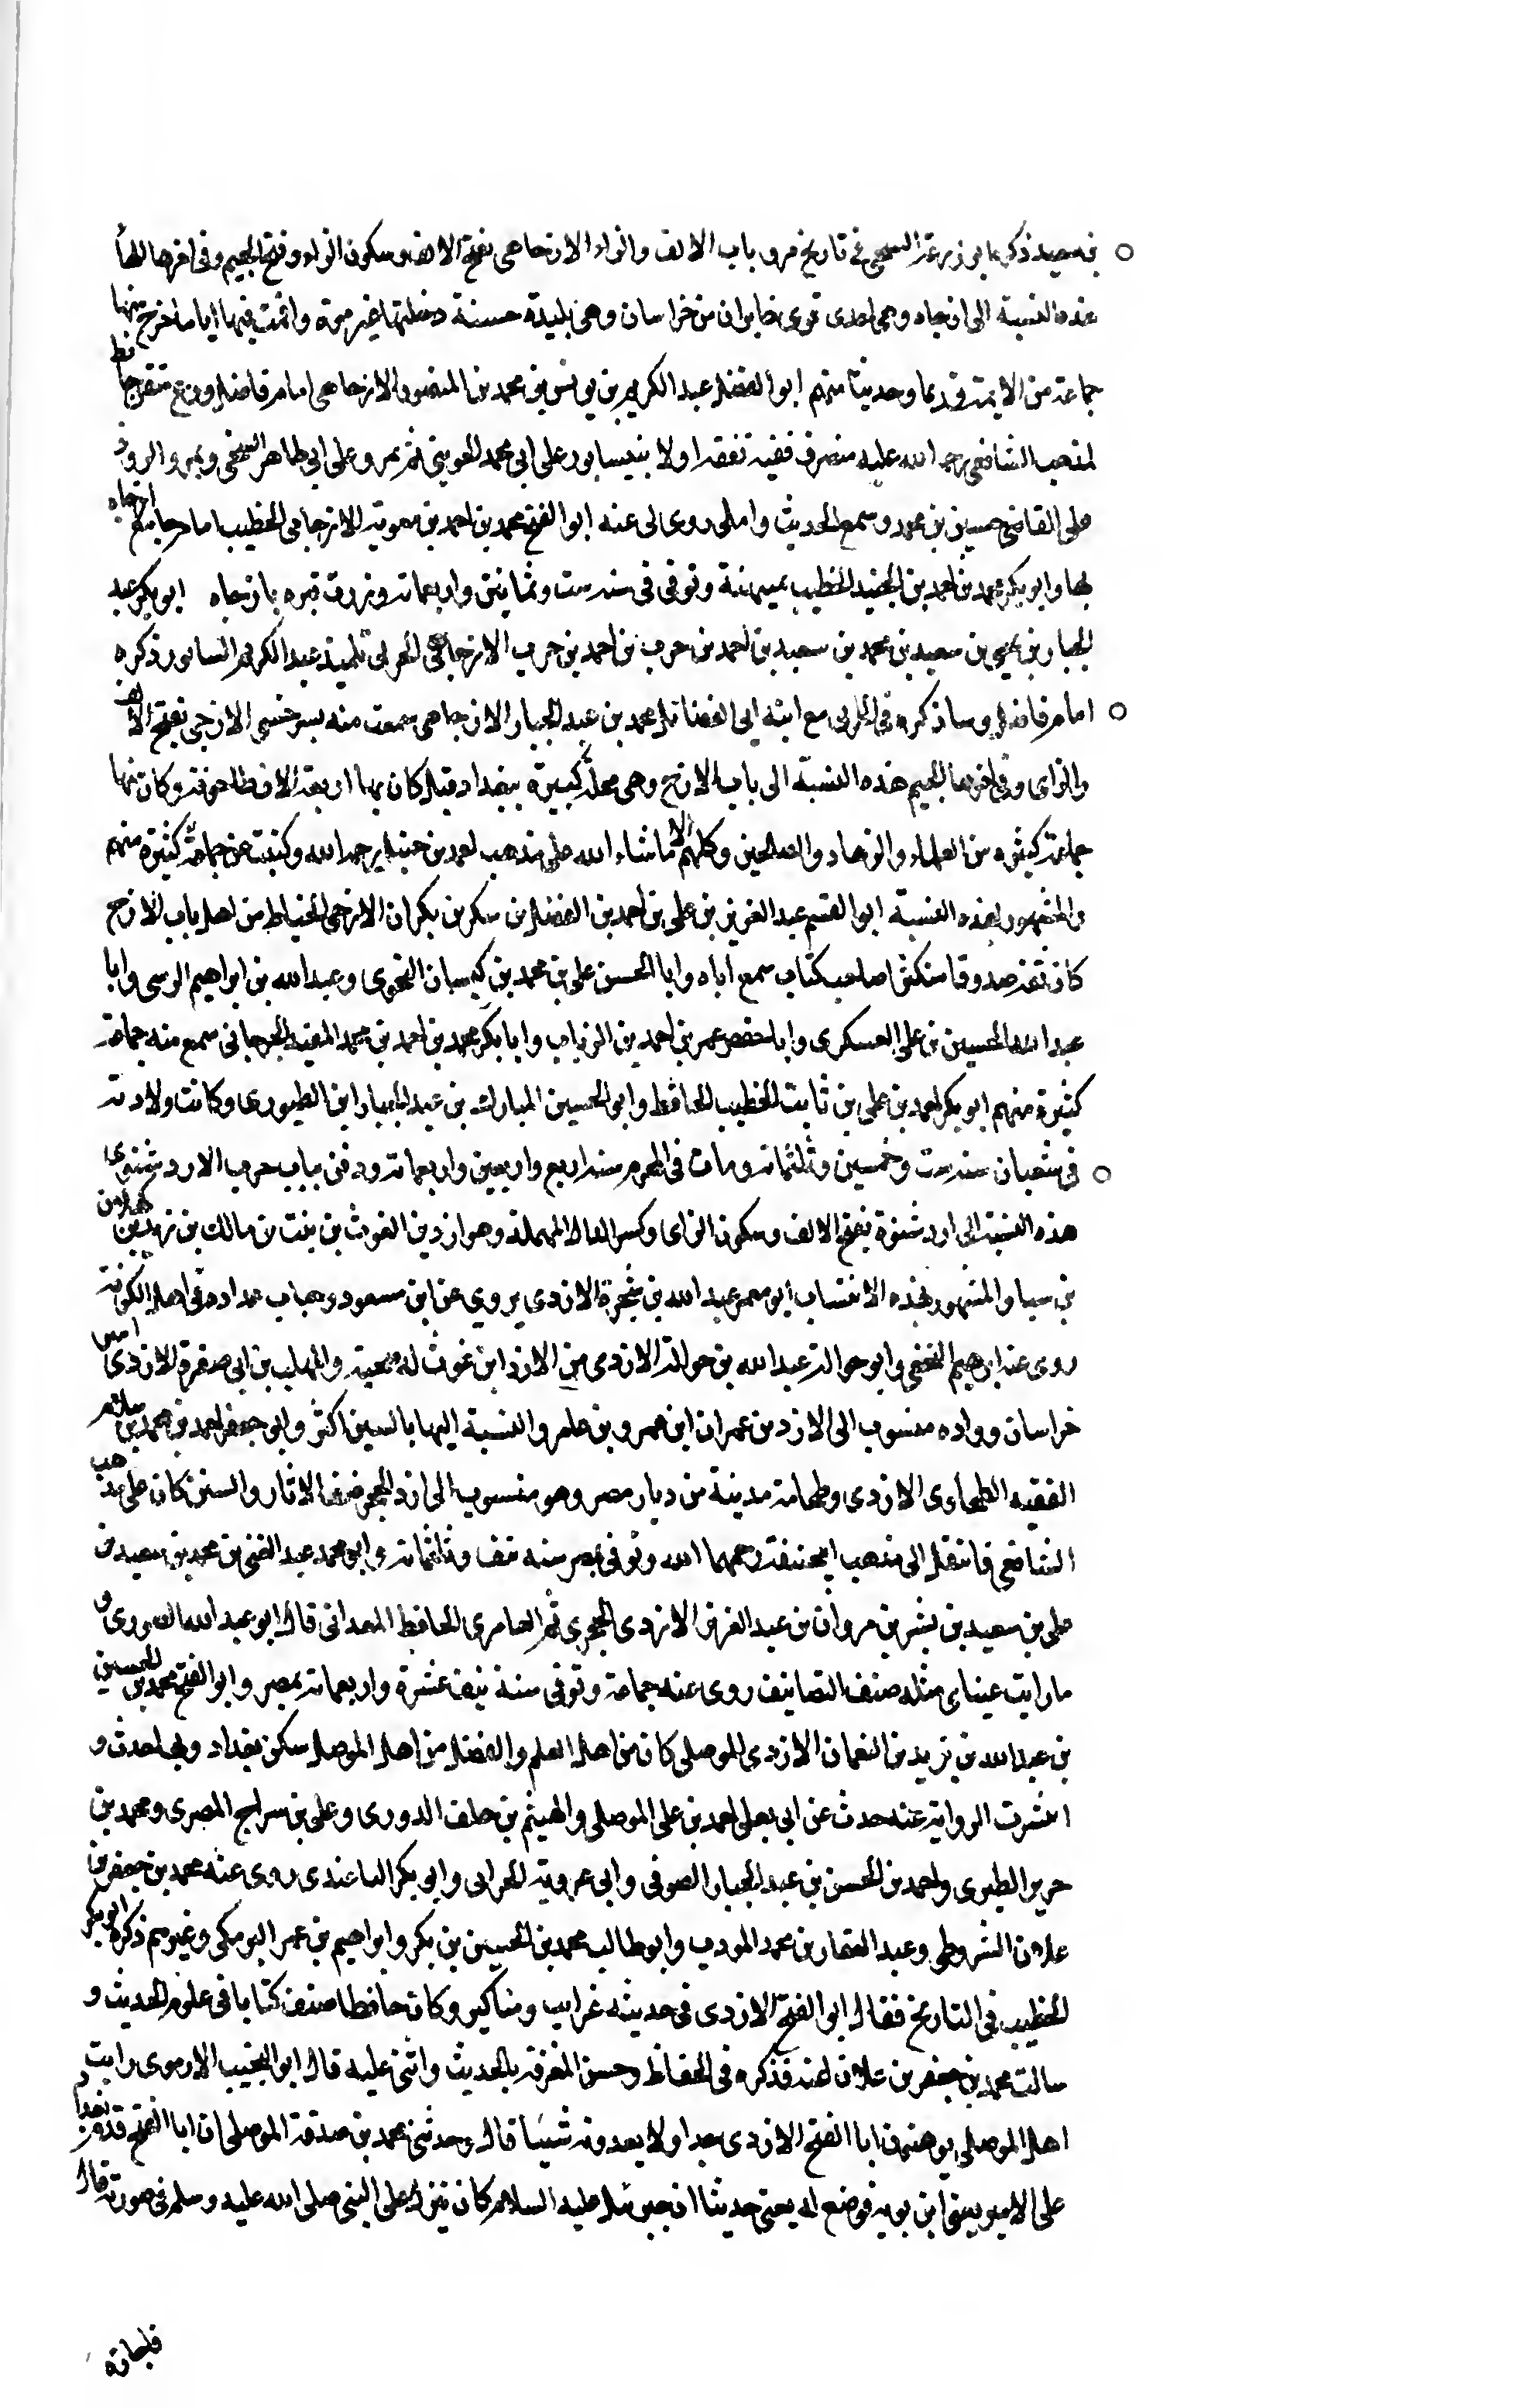 بن سعيد ذكره ابو زرعة السنجى فى تاريخ مرو باب الالف والزاء الازجاهى بفتح الالف وسكون الزاء وفتح الجيم وفى اخرها الهأ
هذه النسبة الى ازجاه وهى احدى قرى خابران من خراسان وهى بليدة حسنة دخلتها غير مرة واقمت فيها اياما خرج منها
جماعة من الايمة قديما وحديثا منهم ابو الفضل عبد الكريم بن يونس بن محمد بن المنصور الازجاهى امام فاضل ورع متقن حافظ
لمذهب الشافعى رحمه الله عليه متصرف فقيه تفقه اولا بنيسابور على ابى محمد الجوينى ثم بمرو على ابى طاهر السنجى وبمرو الروذ
على القاضى حسين بن محمد وسمع الحديث واملى روى لى عنه ابو الفتح محمد بن احمد بن معوية الازجاهى الخطيب امام جامع ازجاه
بها وابو بكر محمد بن احمد بن الجنيد الخطيب بميهنة وتوفى فى سنه ست وثمانين واربعمائه وزرت قبره بازجاه ابو بكر عبد
الجبار بن يحيى بن سعيد بن محمد بن سعيد بن احمد بن حرب بن احمد بن حرب الازجاهى الحربى تلميذ عبد الكريم السابق ذكره
امام فاضل وساذكره فى الحربى مع ابنه ابى الفضائل محمد بن عبد الجبار الازجاهى سمعت منه بسرخس الازجى بفتح الالف
والزاى وفى اخرها الجيم هذه النسبة الى باب الازج وهى محلة كبيرة ببغداد قيل كان بها اربعة الاف طاحونه وكان منها
جماعة كثيره من العلماء والزهاد والصالحين وكلهم الا ماشاء الله على مذهب احمد بن حنبل رحمه الله وكتبت عن جماعة كثيرة منهم
والمشهور بهذه النسبة ابو القسم عبد العزيز بن على بن احمد بن الفضل بن سكر بن بكران الازجى الخياط من اهل باب الازج
كان ثقه صدوقا مكثرا صاحب كتاب سمع اباه وابا الحسن على بن محمد بن كيسان النحوى وعبد الله بن ابراهيم الزسى وابا
عبد الله الحسين بن على العسكرى وابا حفص عمر بن احمد بن الزيات وابا بكر محمد بن احمد بن محمد المفيد الجرجانى سمع منه جماعة
كثيرة منهم ابو بكر احمد بن على بن ثابت الخطيب الحافظ وابو الحسين المبارك بن عبد الجبار ابن الطيورى وكانت ولادته
فى شعبان سنه ست وخمسين وثلثمائه ومات فى المحرم سنه اربع واربعين واربعمائه ودفن بباب حرب الازد شنوى
هذه النسبة الى ازد شنوة بفتح الالف وسكون الزاى وكسر الدال المهملة وهو ازد بن الغوث بن نبت بن مالك بن زيد بن كهلان
بن سبا والمشهور بهذه الانتساب ابو معمر عبد الله بن سخبرة الازدى يروى عن ابن مسعود وخباب عداده فى اهل الكوفة
روى عنه ابرهيم النخعى وابو حوالة عبد الله بن حوالة الازدى من الازد ابن غوث له صحبة والمهلب بن ابى صفرة الازدى امير
خراسان وولده منسوب الى الازد بن عمران ابن عمرو بن عامر والنسبة اليها بالسين اكثر وابو جعفر احمد بن محمد بن سلامه
الفقيه الطحاوى الازدى وطحا مدينة من ديار مصر وهو منسوب الى ازد الحجر صنف الاثار والسنن كان على مذهب
الشافعى فانتقل الى مذهب ابى حنيفة رحمهما الله وتوفى بمصر سنه نيف وثلثمائه وابو محمد عبد الغنى بن محمد بن سعيد بن
على بن سعيد بن بشر بن مروان بن عبد العزيز الازدى الحجرى ثم العامرى الحافظ المعدانى قال ابو عبد الله الصورى و
ما رايت عيناى مثله صنف التصانيف روى عنه جماعة وتوفى سنة نيف عشرة واربعمائه بمصر وابو الفتح محمد بن الحسين
بن عبد الله بن يزيد بن النعمان الازدى الموصلى كان من اهل العلم والفضل من اهل الموصل سكن بغداد وبها حدث و
انتشرت الرواية عنه حدث عن ابى يعلى احمد بن على الموصلى والهيثم بن خلف الدورى وعلى بن سراج المصرى ومحمد بن
جرير الطبرى واحمد بن الحسن بن عبد الجبار الصوفى وابى عروبة الحرانى وابو بكر الباغندى روى عنه محمد بن جعفر بن
علان الشروطى وعبد الغفار بن محمد المودب وابو طالب محمد بن الحسين بن بكر وابراهيم بن عمر البرمكى وغيرهم ذكره ابو بكر
الخطيب فى التاريخ فقال ابو الفتح الازدى فى حديثه غرايب ومناكير وكان حافظا صنف كتابا فى علوم الحديث و
سالت محمد بن جعفر بن علان عنه فذكره فى الحفاظ وحسن المعرفة بالحديث واثنى عليه قال ابو النجيب الارموى رايت
اهل الموصل يوهنون ابا الفتح الازدى جدا ولا يعدونه شيئا قال وحدثنى محمد بن صدقة الموصلى ان ابا الفتح قدم بغداد
على الامير يعنى ابن بويه فوضع له يعنى حديثا ان جبرئيل عليه السلام كان ينزل على النبى صلى الله عليه وسلم فى صورته قال
فاجازه